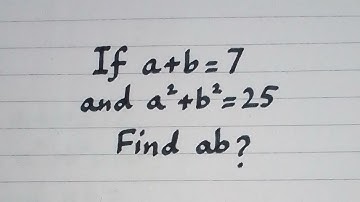 If a+b=7
and a²+b²=25
Find ab?